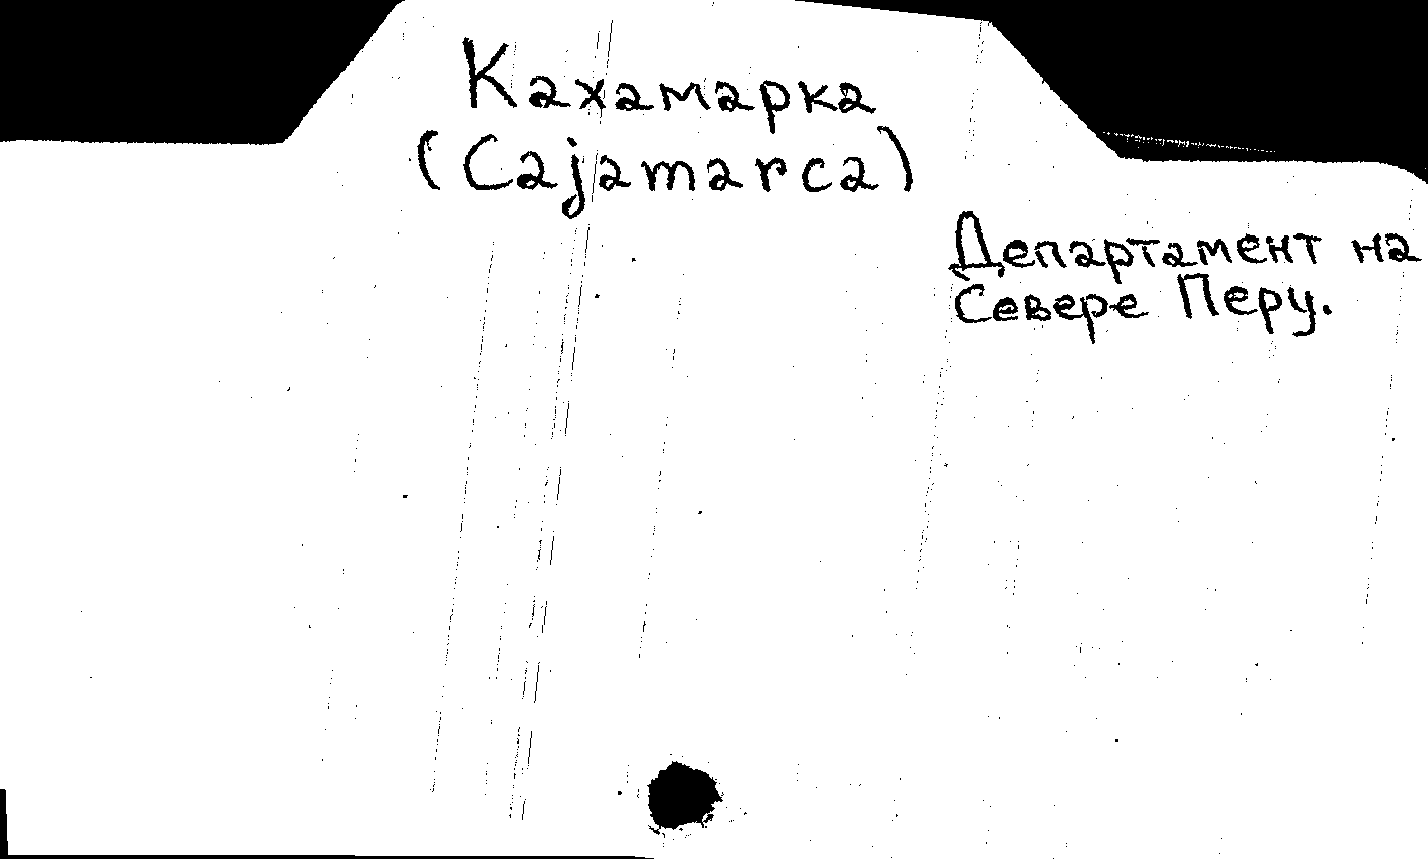 Кахамарка
(Cajamarca)
Департамент на
Севере Перу.